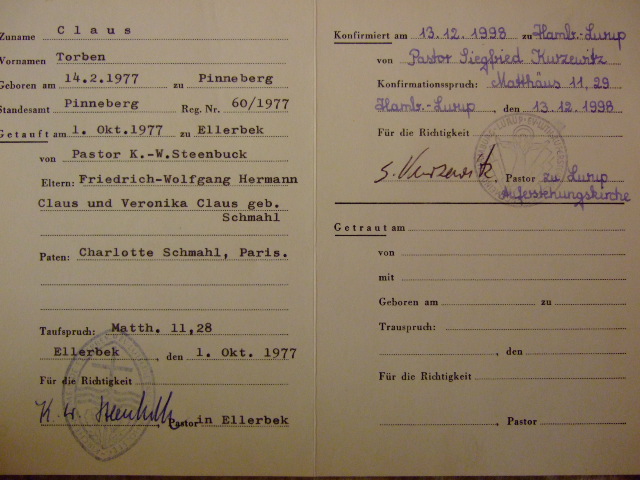 Zuname C l a u s
Vornamen Torben
Geboren am 14.2.1977 zu Pinneberg
Standesamt Pinneberg Reg. Nr. 60/1977
Getauft am 1. Okt.1977 zu Ellerbek
von Pastor K.-W.Steenbuck
Eltern: Friedrich-Wolfgang Hermann
Claus und Veronika Claus geb.
Schmahl
Paten: Charlotte Schmahl, Paris.
Taufspruch: Matth. 11,28
Ellerbek, den 1. Okt. 1977
Für die Richtigkeit
K. W. Steenbuck, Pastor in Ellerbek
Konfirmiert am 13.12.1998 zu Hambr.-Lurup
von Pastor Siegfried Kurzewitz
Konfirmationsspruch: Matthäus 11, 29
Hambr.-Lurup, den 13.12.1998
Für die Richtigkeit
S. Kurzewitz, Pastor zu Lurup
Auferstehungskirche
Getraut am
von
mit
Geboren am zu
Trauspruch:
, den
Für die Richtigkeit
, Pastor